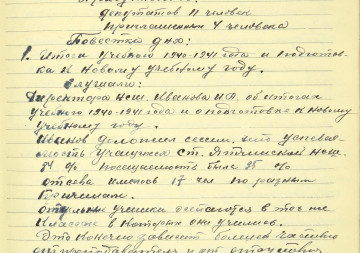 депутатов 11 человек
приглашенных 4 человека
Повестка дня:
1. Итоги учебного 1940-1941 года и подготов
ка к новому учебному году.
Слушали:
Директора нсш. Иванова об итогах
учебного 1940-1941 года и о подготовке к новому
учебному году.
Иванов доложил сессии, что успевае
мость учащихся Ст. нсш.
% посещаемость была 95 %
отсева имелось 17 чел по разным
причинам.
Отдельные ученики остаются в тех же
классах в которых они учились.
Это конечно зависит больше частью
от преподавателя и от